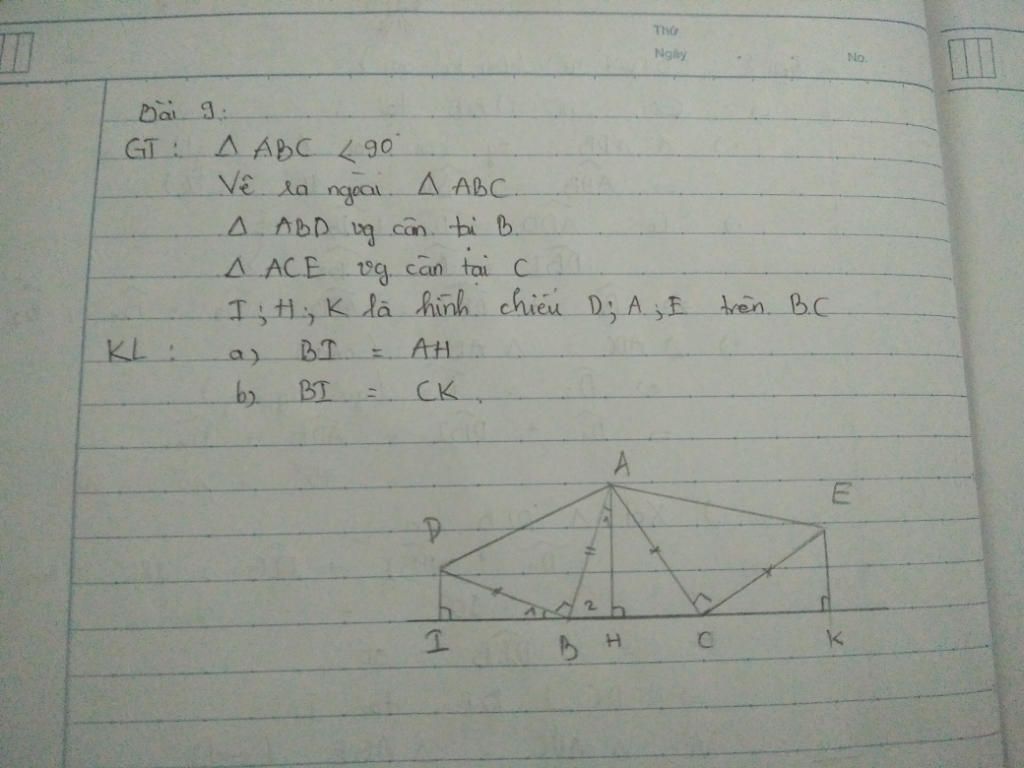 Thứ
Ngày
No.
Bài 9:
GT: Δ ABC < 90°
Vẽ ra ngoài Δ ABC
Δ ABD vg cân tại B
Δ ACE vg cân tại C
I; H; K là hình chiếu D; A; E trên BC
KL: a) BI = AH
b) BI = CK.
A
E
D
1
1 2
I B H C K